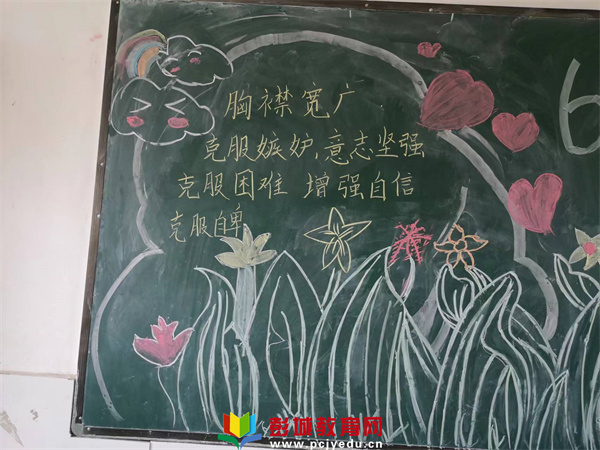 胸襟宽广
克服嫉妒,意志坚强
克服困难 增强自信
克服自卑
彭城教育网
www.pcjyedu.cn